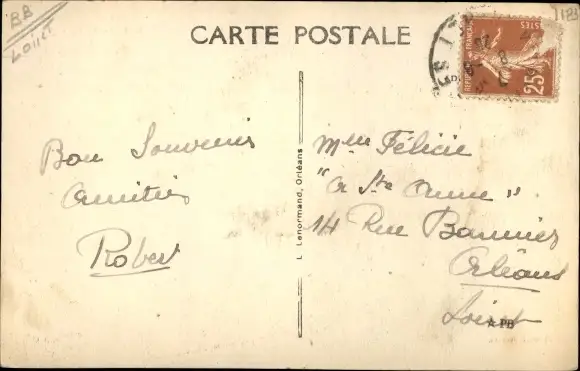 BB
Loiret
CARTE POSTALE
REPUBLIQUE FRANÇAISE
POSTES
25c
Bon Souvenir
Amitiés
Robert
L. Lenormand, Orléans
Mlle Félicie
"A Ste Anne"
14 Rue Bannier
Orléans
Loiret
☆ PB